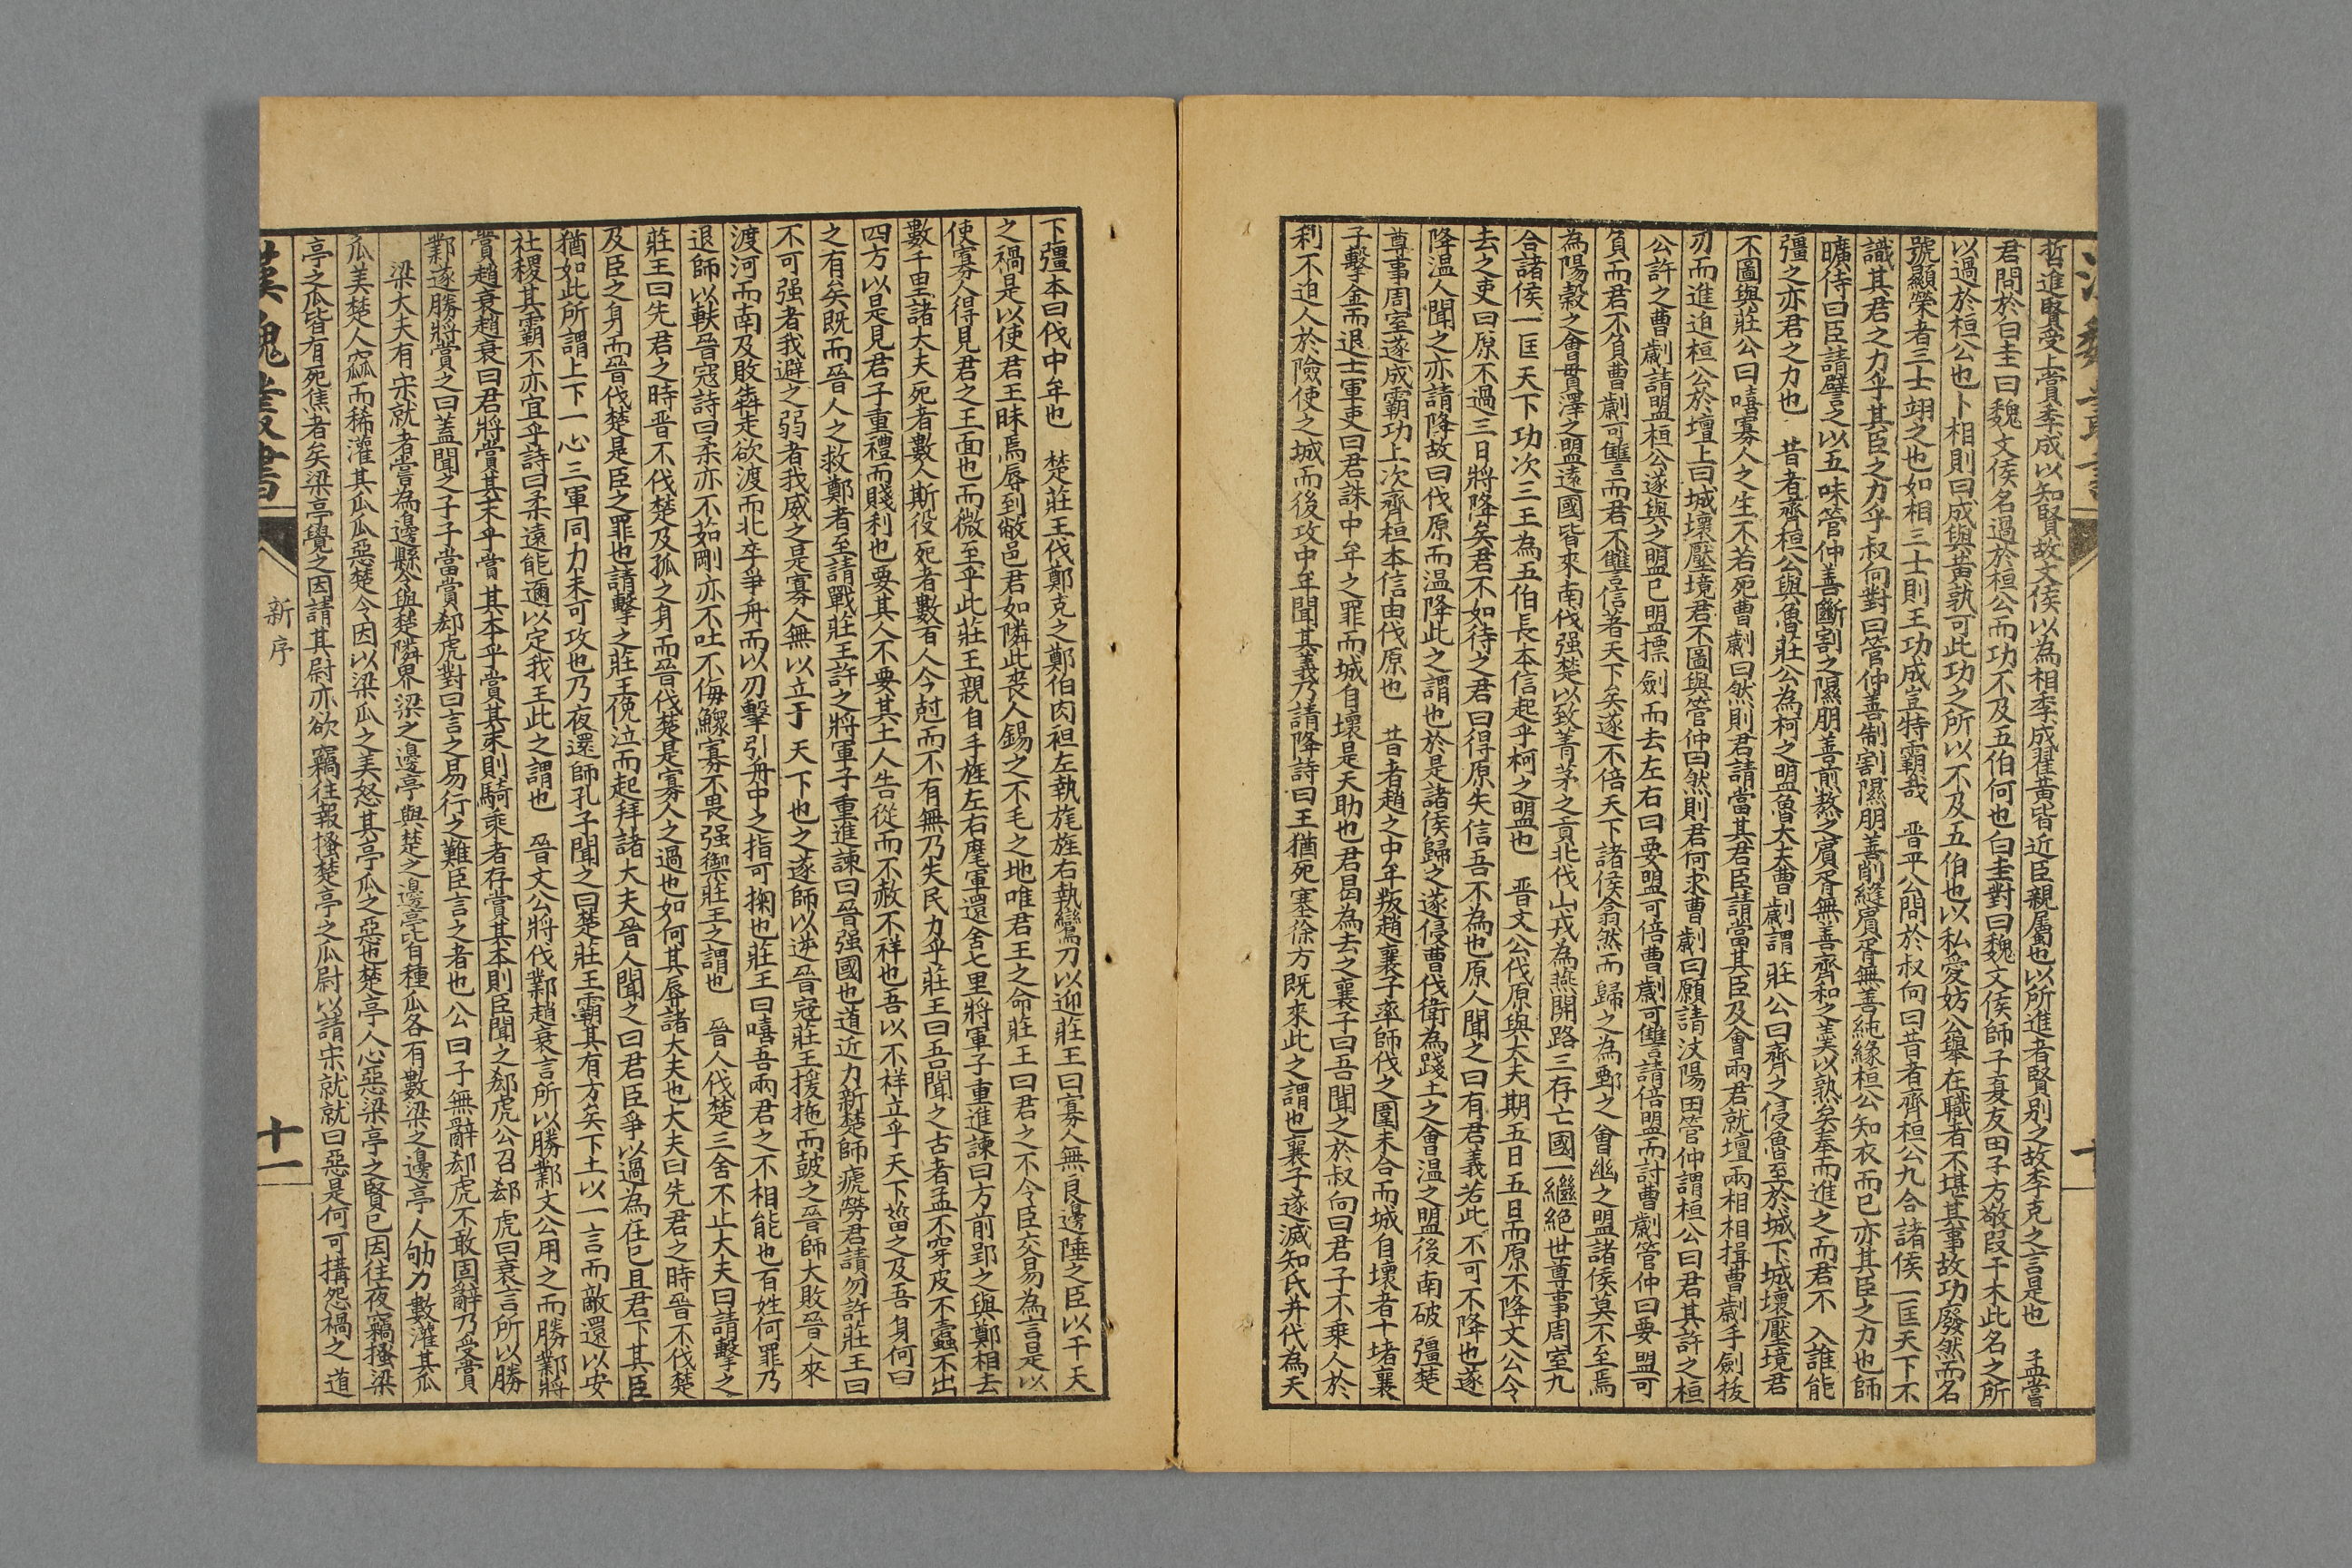 哲進賢受上賞季成以知賢故文侯以為相季成翟黃皆近臣親屬也以所進者賢別之故李克之言是也　孟嘗
君問於白圭曰魏文侯名過於桓公而功不及五伯何也白圭對曰魏文侯師子夏友田子方敬段干木此名之所
以過於桓公也卜相則曰成與黃孰可此功之所以不及五伯也以私愛妨公舉在職者不堪其事故功廢然而名
號顯榮者三士翊之也如相三士則王功成豈特霸哉　晉平公問於叔向曰昔者齊桓公九合諸侯一匡天下不
識其君之力乎其臣之力乎叔向對曰管仲善制割隰朋善削縫賓胥無善純緣桓公知衣而已亦其臣之力也師
曠侍曰臣請譬之以五味管仲善斷割之隰朋善煎熬之賓胥無善齊和之羹以熟矣奉而進之而君不　入誰能
彊之亦君之力也　昔者齊桓公與魯莊公為柯之盟魯大夫曹劌謂莊公曰齊之侵魯至於城下城壞壓境君
不圖與莊公曰嘻寡人之生不若死曹劌曰然則君請當其君臣請當其臣及會兩君就壇兩相相揖曹劌手劍拔
刃而進迫桓公於壇上曰城壞壓境君不圖與管仲曰然則君何求曹劌曰願請汶陽田管仲謂桓公曰君其許之桓
公許之曹劌請盟桓公遂與之盟已盟摽劍而去左右曰要盟可倍曹劌可讐請倍盟而討曹劌管仲曰要盟可
負而君不負曹劌可讐而君不讐信著天下矣遂不倍天下諸侯翕然而歸之為鄄之會幽之盟諸侯莫不至焉
為陽穀之會貫澤之盟遠國皆來南伐强楚以致菁茅之貢北伐山戎為燕開路三存亡國一繼絕世尊事周室九
合諸侯一匡天下功次三王為五伯長本信起乎柯之盟也　晉文公伐原與大夫期五日五日而原不降文公令
去之吏曰原不過三日將降矣君不如待之君曰得原失信吾不為也原人聞之曰有君義若此不可不降也遂
降溫人聞之亦請降故曰伐原而溫降此之謂也於是諸侯歸之遂侵曹伐衛為踐土之會溫之盟後南破彊楚
尊事周室遂成霸功上次齊桓本信由伐原也　昔者趙之中牟叛趙襄子率師伐之圍未合而城自壞者十堵襄
子擊金而退士軍吏曰君誅中牟之罪而城自壞是天助也君曷為去之襄子曰吾聞之於叔向曰君子不乘人於
利不迫人於險使之城而後攻中牟聞其義乃請降詩曰王猶允塞徐方既來此之謂也襄子遂滅知氏并代為天
下彊本曰伐中牟也　楚莊王伐鄭克之鄭伯肉袒左執旄旌右執鸞刀以迎莊王曰寡人無良邊陲之臣以干天
之禍是以使君王昧焉辱到敝邑君如隣此喪人錫之不毛之地唯君王之命莊王曰君之不令臣交易為言是以
使寡人得見君之玉面也而微至乎此莊王親自手旌左右麾軍還舍七里將軍子重進諫曰方前郢之與鄭相去
數千里諸大夫死者數人斯役死者數百人今尅而不有無乃失民力乎莊王曰吾聞之古者盂不穿皮不蠹不出
四方以是見君子重禮而賤利也要其人不要其土人告從而不赦不祥也吾以不祥立乎天下菑之及吾身何曰
之有矣既而晉人之救鄭者至請戰莊王許之將軍子重進諫曰晉强國也道近力新楚師疲勞君請勿許莊王曰
不可强者我避之弱者我威之是寡人無以立于天下也之遂師以逆晉寇莊王援枹而鼓之晉師大敗晉人來
渡河而南及敗犇走欲渡而北卒爭舟而以刃擊引舟中之指可掬也莊王曰嘻吾兩君之不相能也百姓何罪乃
退師以軼晉寇詩曰柔亦不茹剛亦不吐不侮鰥寡不畏强禦莊王之謂也　晉人伐楚三舍不止大夫曰請擊之
莊王曰先君之時晉不伐楚及孤之身而晉伐楚是寡人之過也如何其辱諸大夫也大夫曰先君之時晉不伐楚
及臣之身而晉伐楚是臣之罪也請擊之莊王俛泣而起拜諸大夫晉人聞之曰君臣爭以過為在己且君下其臣
猶如此所謂上下一心三軍同力未可攻也乃夜還師孔子聞之曰楚莊王霸其有方矣下士以一言而敵還以安
社稷其霸不亦宜乎詩曰柔遠能邇以定我王此之謂也　晉文公將伐鄴趙衰言所以勝鄴文公用之而勝鄴將
賞趙衰趙衰曰君將賞其末乎賞其本乎賞其末則騎乘者存賞其本則臣聞之郄虎公召郄虎曰衰言所以勝
鄴遂勝將賞之曰蓋聞之子子當賞郄虎對曰言之易行之難臣言之者也公曰子無辭郄虎不敢固辭乃受賞
梁大夫有宋就者嘗為邊縣令與楚隣界梁之邊亭與楚之邊亭皆種瓜各有數梁之邊亭人劬力數灌其瓜
瓜美楚人窳而稀灌其瓜瓜惡楚令因以梁瓜之美怒其亭瓜之惡也楚亭人心惡梁亭之賢己因往夜竊搔梁
亭之瓜皆有死焦者矣梁亭覺之因請其尉亦欲竊往報搔楚亭之瓜尉以請宋就就曰惡是何可搆怨禍之道
漢魏叢書
新序
十一